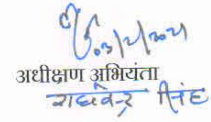 03/2/2021
अधीक्षण अभियंता
राघवेन्द्र सिंह